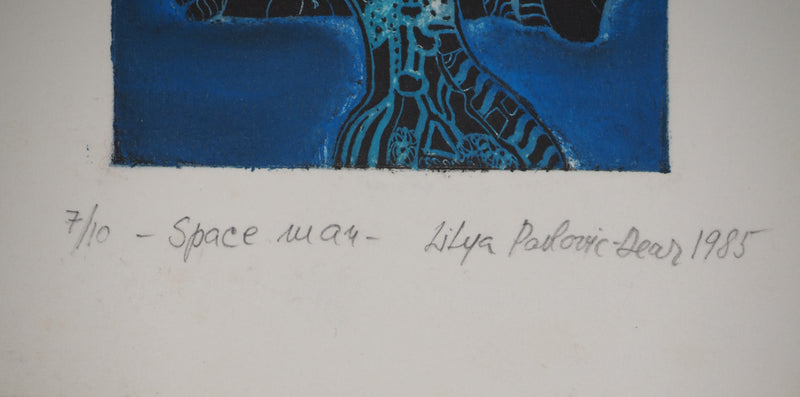 7/10 - Space man - Lilya Pavlovic-Dear 1985